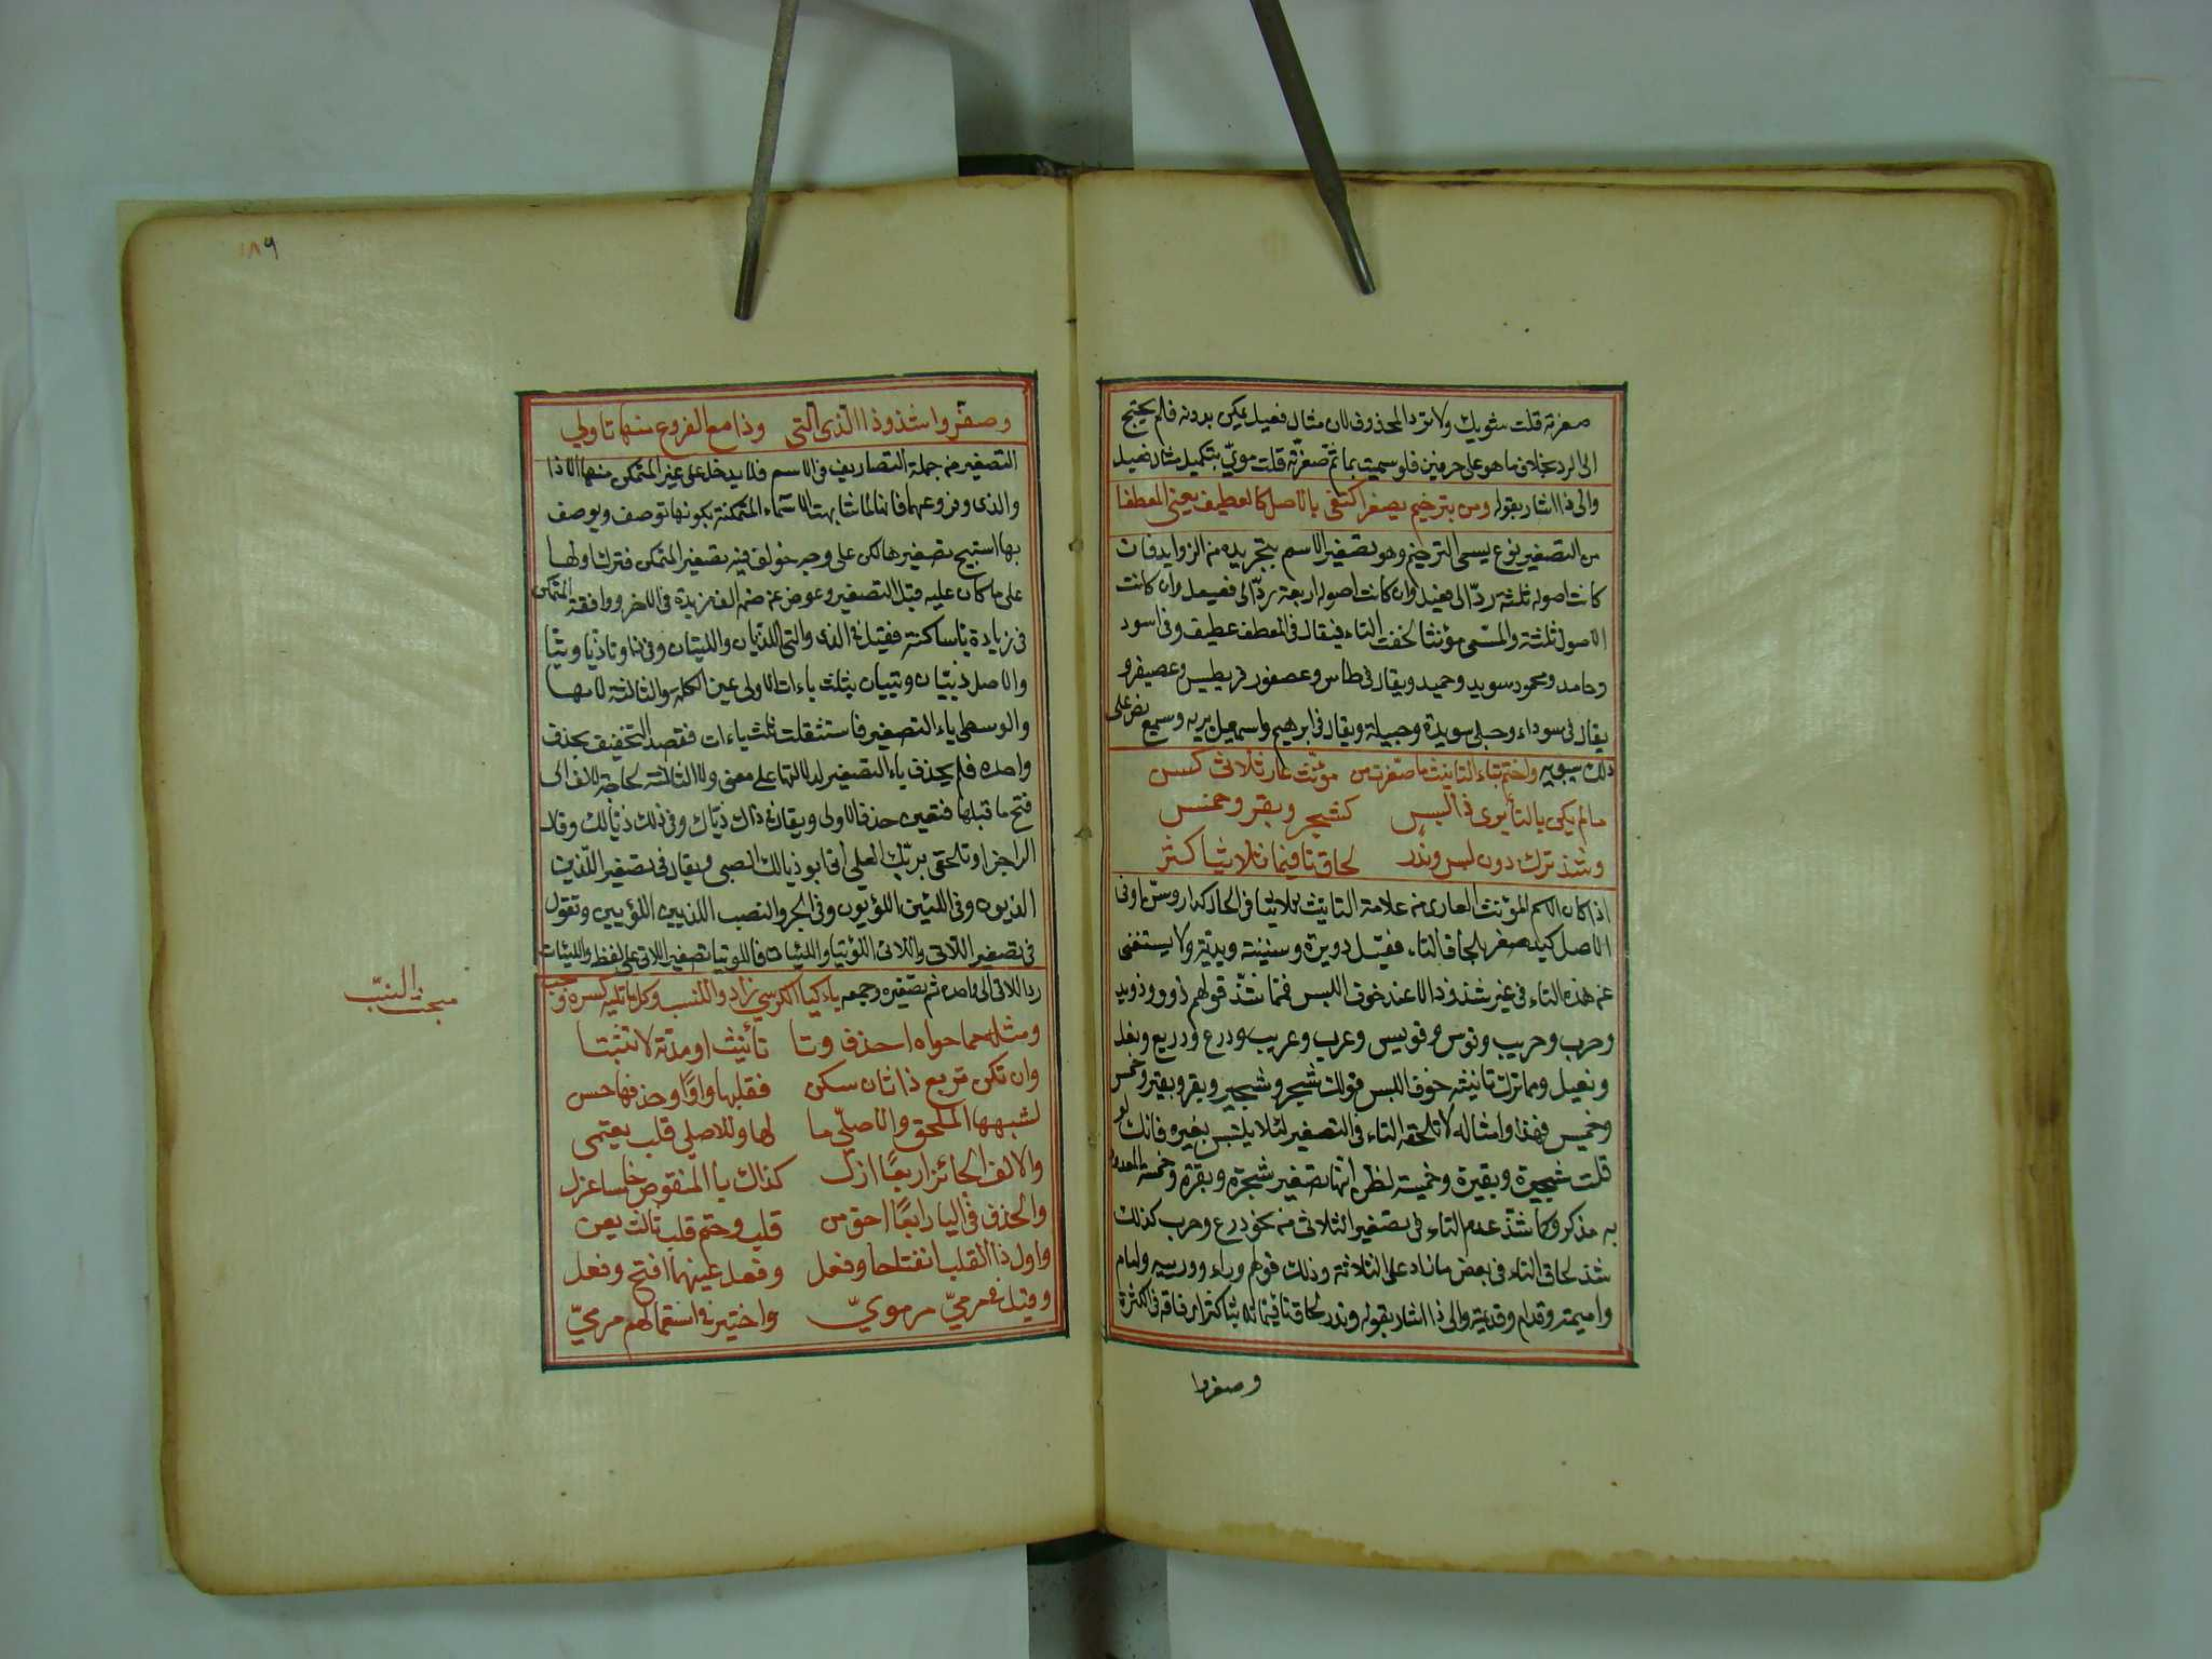 صغرته قلت شويك ولا ترد المحذوف لان مثال فعيل يمكن بدونه فلم يحتج
الى الرد بخلاف ما هو على حرفين فلو سميت بما ثم صغرته قلت مويّ بتكميل مثال فعيل
والى ذا اشار بقوله ومن بترخيم يصغر اكتفى بالاصل كالعطيف يعنى المعطفا
من التصغير نوع يسمى الترخيم وهو تصغير الاسم بتجريده من الزوايد فان
كانت اصوله ثلثة ردّ الى فعيل وان كانت اصوله اربعة ردّ الى فعيعل وان كانت
الاصول ثلثة والمسمى مؤنثا لحقت التاء فيقال فى المعطف عطيف وفى اسود
وحامد ومحمود سويد وحميد ويقال فى قرطاس وعصفور قريطس وعصيفر و
يقال فى سوداء وحبلى سويدة وحبيلة ويقال فى ابرهيم واسمعيل بريه وسميع نص على
ذلك سيبويه واختم بتاء التانيث ما صغرت من مؤنث عار ثلاثى كسن
ما لم يكن بالتا يرى ذا لبس كشجر وبقر وخمس
وشذ ترك دون لبس وندر لحاق تا فيما ثلاثيا كثر
اذا كان الاسم المؤنث العارى من علامة التانيث ثلاثيا فى الحال كدار وسنّ او فى
الاصل كيد صغر بالحاق التاء فقيل دويرة وسنينة ويديّة ولا يستغنى
عن هذه التاء فى غير شذوذ الا عند خوف اللبس فمما شذّ قولهم ذود وذويد
وحرب وحريب وقوس وقويس وعرب وعريب ودرع ودريع ونعل
ونعيل ومما ترك تانيثه خوف اللبس قولك شجر وشجير وبقر وبقير وخمس
وخميس فهذا وامثاله لا تلحقه التاء فى التصغير لئلا يلتبس بغيره فانك لو
قلت شجيرة وبقيرة وخميسة لظن انها تصغير شجرة وبقرة وخمسة المعدود
به مذكر وكما شذّ عدم التاء فى تصغير الثلاثى من نحو درع وحرب كذلك
شذ لحاق التاء فى بعض ما زاد على الثلاثة وذلك قولهم وراء ووريية وامام
واميمة وقدام وقديمة والى ذا اشار بقوله وندر لحاق تا فيما ثلاثيا كثر اى فاقه فى الكثرة
وصغروا
١٨٩
وصغّروا شذوذا الذى التى وذا مع الفروع منها تا وتى
التصغير من جملة التصاريف فى الاسم فلا يدخل على غير المتمكن منها الا ذا
والذى وفروعهما فانها لما شابهت الاسماء المتمكنة بكونها توصف ويوصف
بها استبيح تصغيرها لكن على وجه خولف فيه تصغير المتمكن فترك اولها
على ما كان عليه قبل التصغير وعوض عن ضمه الف مزيدة فى الاخر ووافقت المتمكن
فى زيادة ياء ساكنة فقيل فى الذى والتى اللذيان واللتيان وفى ذا وتا ذيّا وتيّا
والاصل ذييّا وتييا بثلث ياءات الاولى عين الكلمه والثالثة لامها
والوسطى ياء التصغير فاستثقلت ثلث ياءات فقصد التخفيف بحذف
واحده فلم يحذف ياء التصغير لدلالتها على معنى ولا الثالثة لحاجة الالف الى
فتح ما قبلها فتعين حذف الاولى ويقال فى ذاك ذيّاك وفى ذلك ذيالك وقال
الراجز او تحلفى بربّك العلى انى ابو ذيالك الصبى ويقال فى تصغير اللذين
الذيون وفى اللتين اللؤيون وفى الجر والنصب اللذيين اللؤيين وتقول
فى تصغير اللاتى واللائى اللؤيتا واللتيات فاللويتا تصغير اللاتى على لفظ واللتيات
رد اللاتى الى واحده ثم تصغيره وجمعه ياء كيا الكرسى زادوا للنسب وكل ما تليه كسره وجب
مبحث النسب
ومثله مما حواه احذف وتا تأنيث او مدته لا تثبتا
وان تكن تربع ذا ثان سكن فقلبها واوًا وحذفها حسن
لشبهها الملحق والاصلىّ ما لها وللاصلى قلب يعتمى
والالف الحائز اربعًا ازل كذاك يا المنقوص خامسا عزل
والحذف فى اليا رابعًا احق من قلب وحتم قلب ثالث يعن
واول ذا القلب انفتاحا وفعل وفعل عينهما افتح وفعل
وقيل فى مرمىّ مرموىّ واختير فى استعمالهم مرمىّ